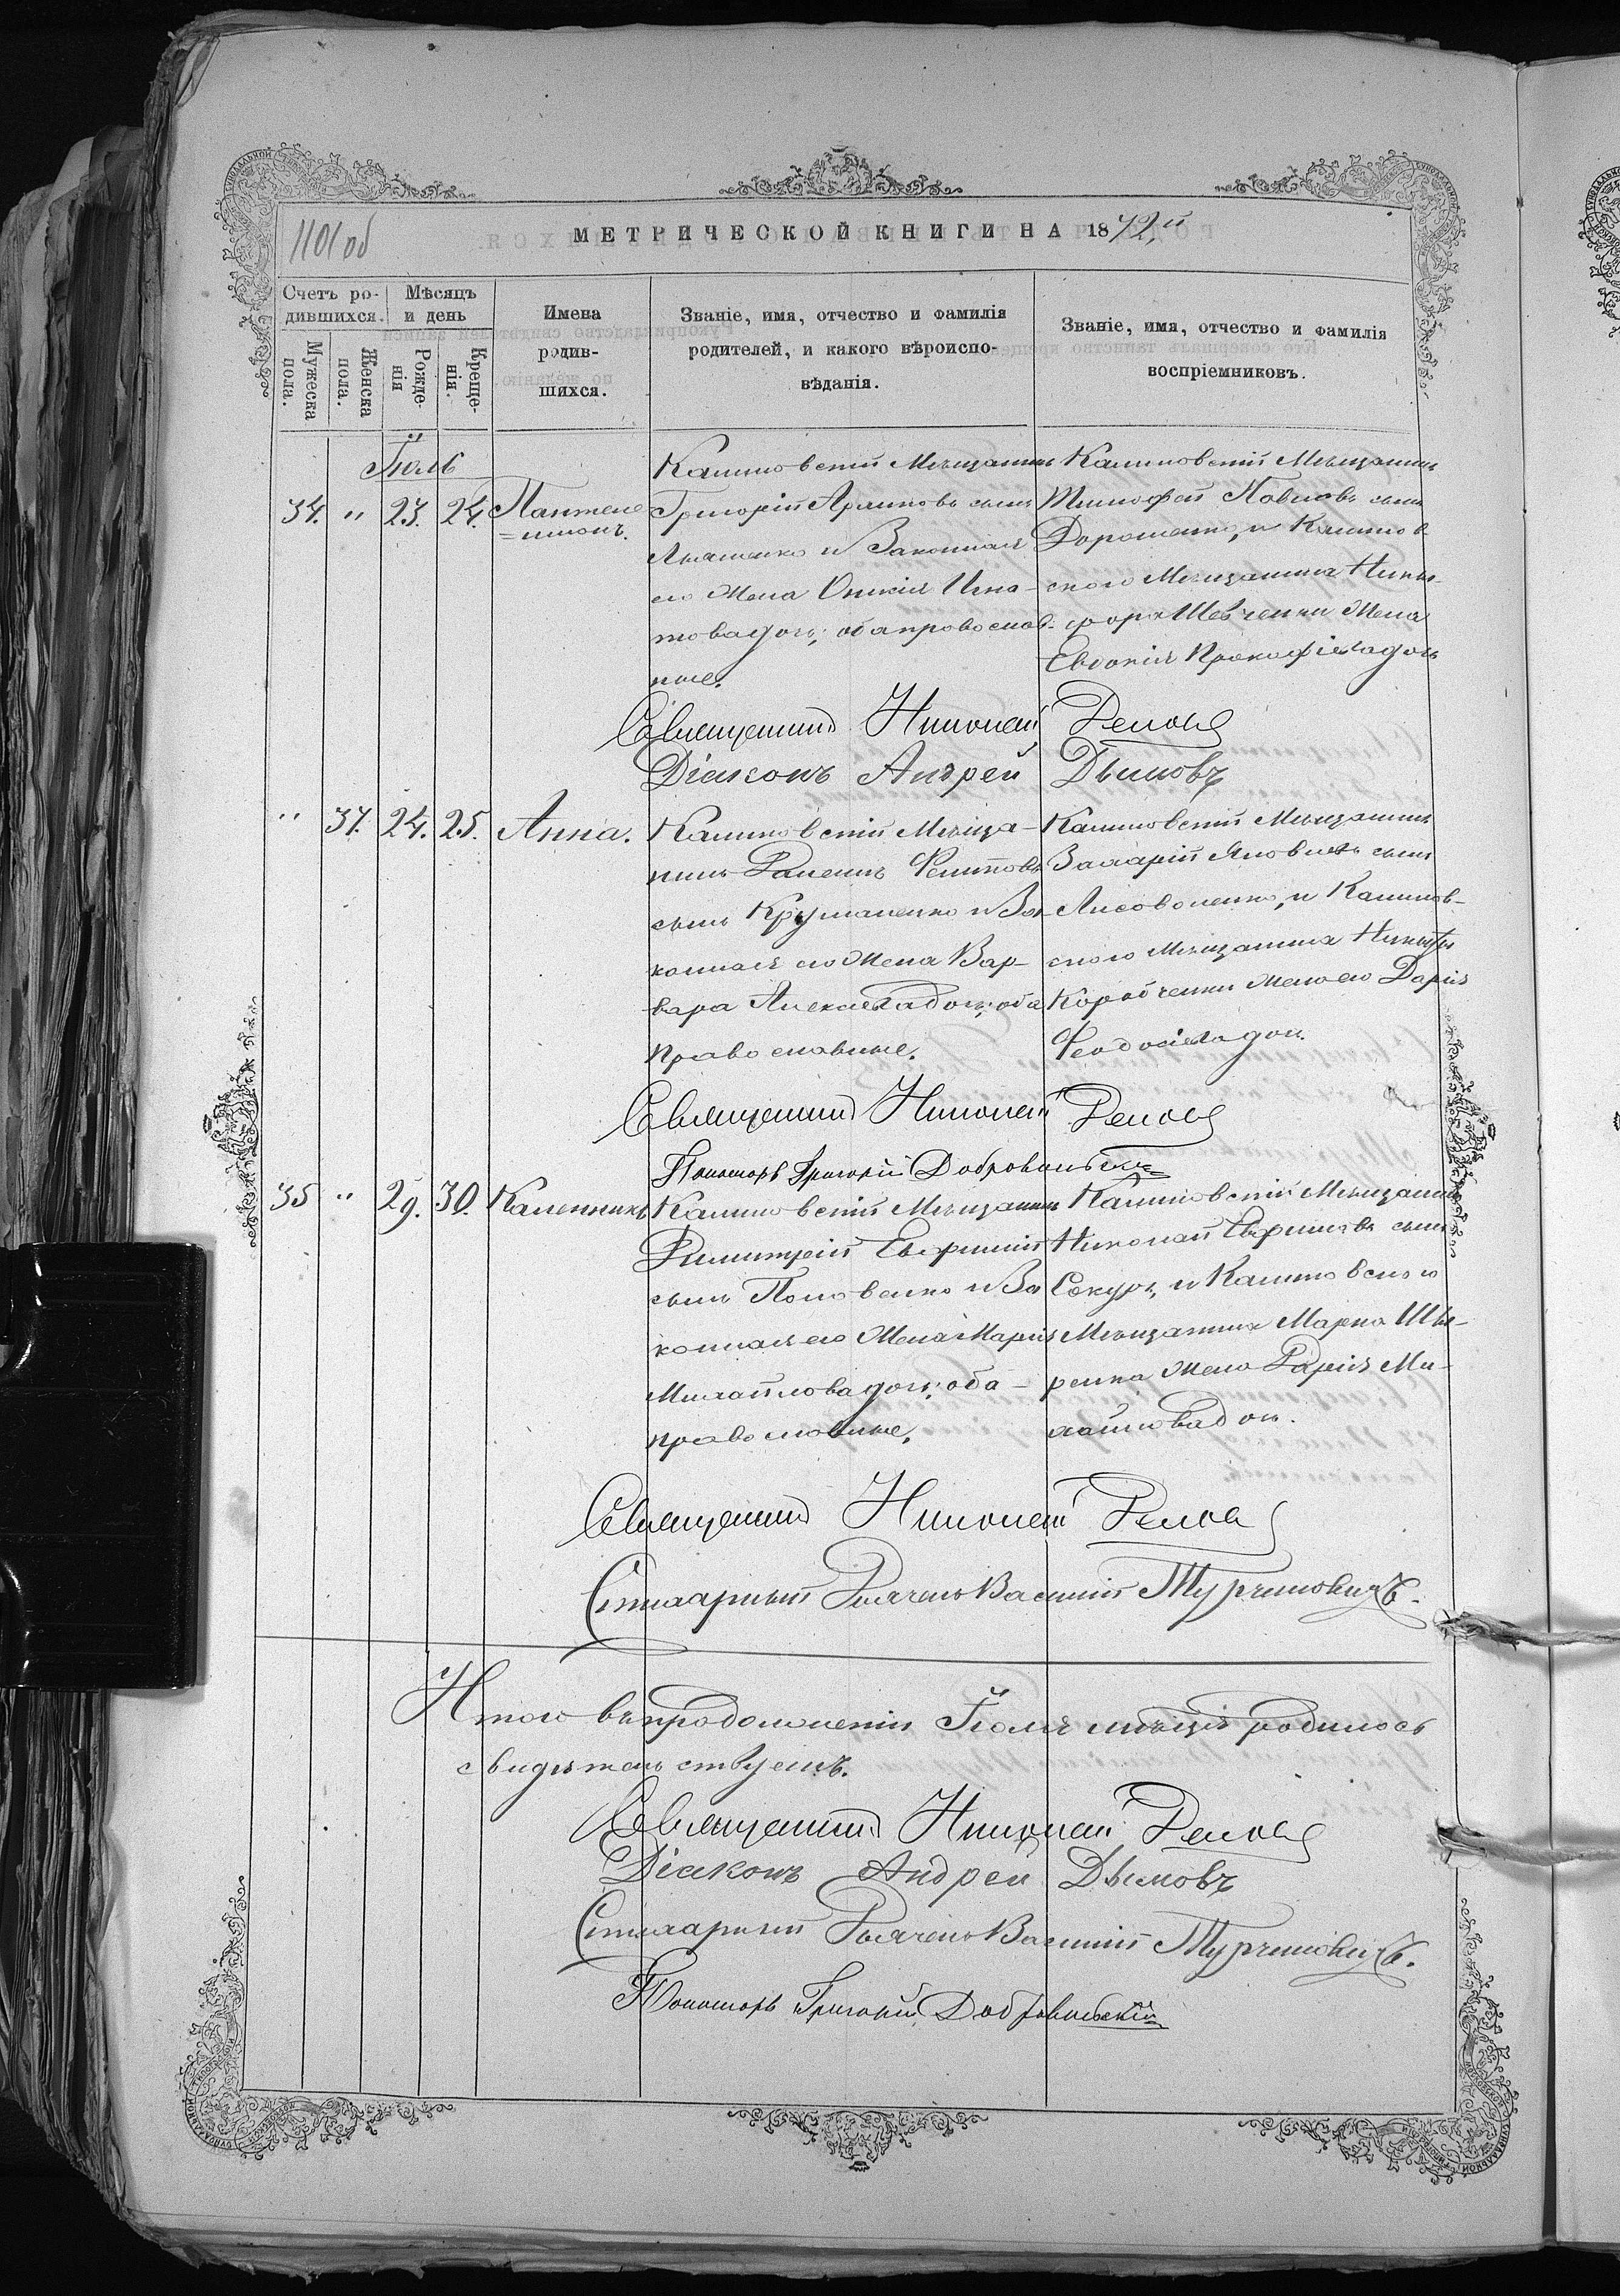 1101 об
МЕТРИЧЕСКОЙ КНИГИ НА 1872й
Счетъ ро-
дившихся.
Мѣсяцъ
и день
Мужеска
пола.
Женска
пола.
Рожде-
нія
Креще-
нія.
Имена
родив-
шихся.
Званіе, имя, отчество и фамилія
родителей, и какого вѣроиспо-
вѣданія.
Званіе, имя, отчество и фамилія
воспріемниковъ.
Іюль
34. " 23. 24. Пантеле
=имонъ.
Мѣщанинъ
Григорій сынъ
и Законная
его жена
това дочь; оба провослав-
ные.
Мѣщанинъ
Тимофей Павловъ сынъ
Дорошенко, и
ского Мѣщанина Ники-
фора Шевченки жена
Евдокія Прокофіева дочь
Священникъ Николай
Діаконъ Андрей Дымовъ
" 37. 24. 25. Анна.
Мѣща-
нинъ Филиповъ
сынъ и За-
конная его жена Вар-
вара Алексѣева дочь; оба
православные.
Мѣщанинъ
Захарій Яковлевъ сынъ
Лисоволенко, и
ского Мѣщанина Никиты
Коробченки жена его Дарія
Феодосіева доч.
Священникъ Николай
Пономарь Григорій Добровольскій
35 " 29. 30. Каленникъ
Мѣщанинъ
Димитрій
сынъ и За
конная его жена Марія
Михайлова дочь; оба -
православные.
Мѣщанинъ
Николай Ефимовъ сынъ
Сокуръ, и
Мѣщанина Марка
ренка жена Дарія Ми-
хайлова доч.
Священникъ Николай
Стихарный Дьячекъ Василій Турчиновичъ.
Итого въ продолженіи Іюля мѣсяця родилось
свидѣтельствуемъ.
Священникъ Николай
Діаконъ Андрей Дымовъ
Стихарный Дьячекъ Василій Турчиновичъ.
Пономарь Григорій Добровольскій